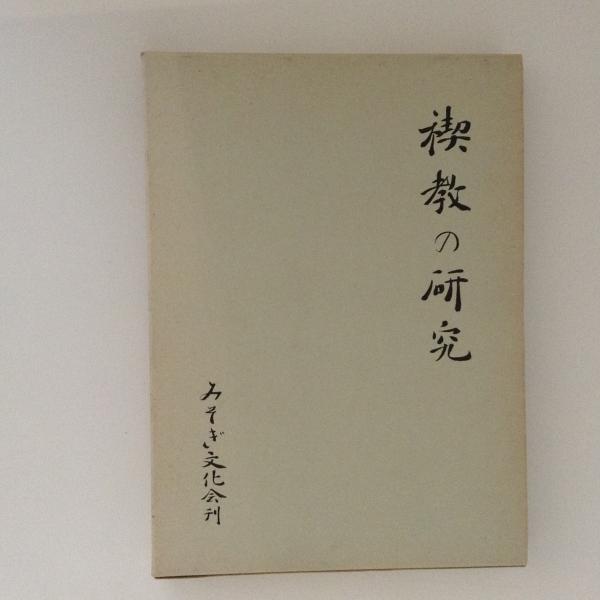 禊教の研究
みそぎ文化会刊